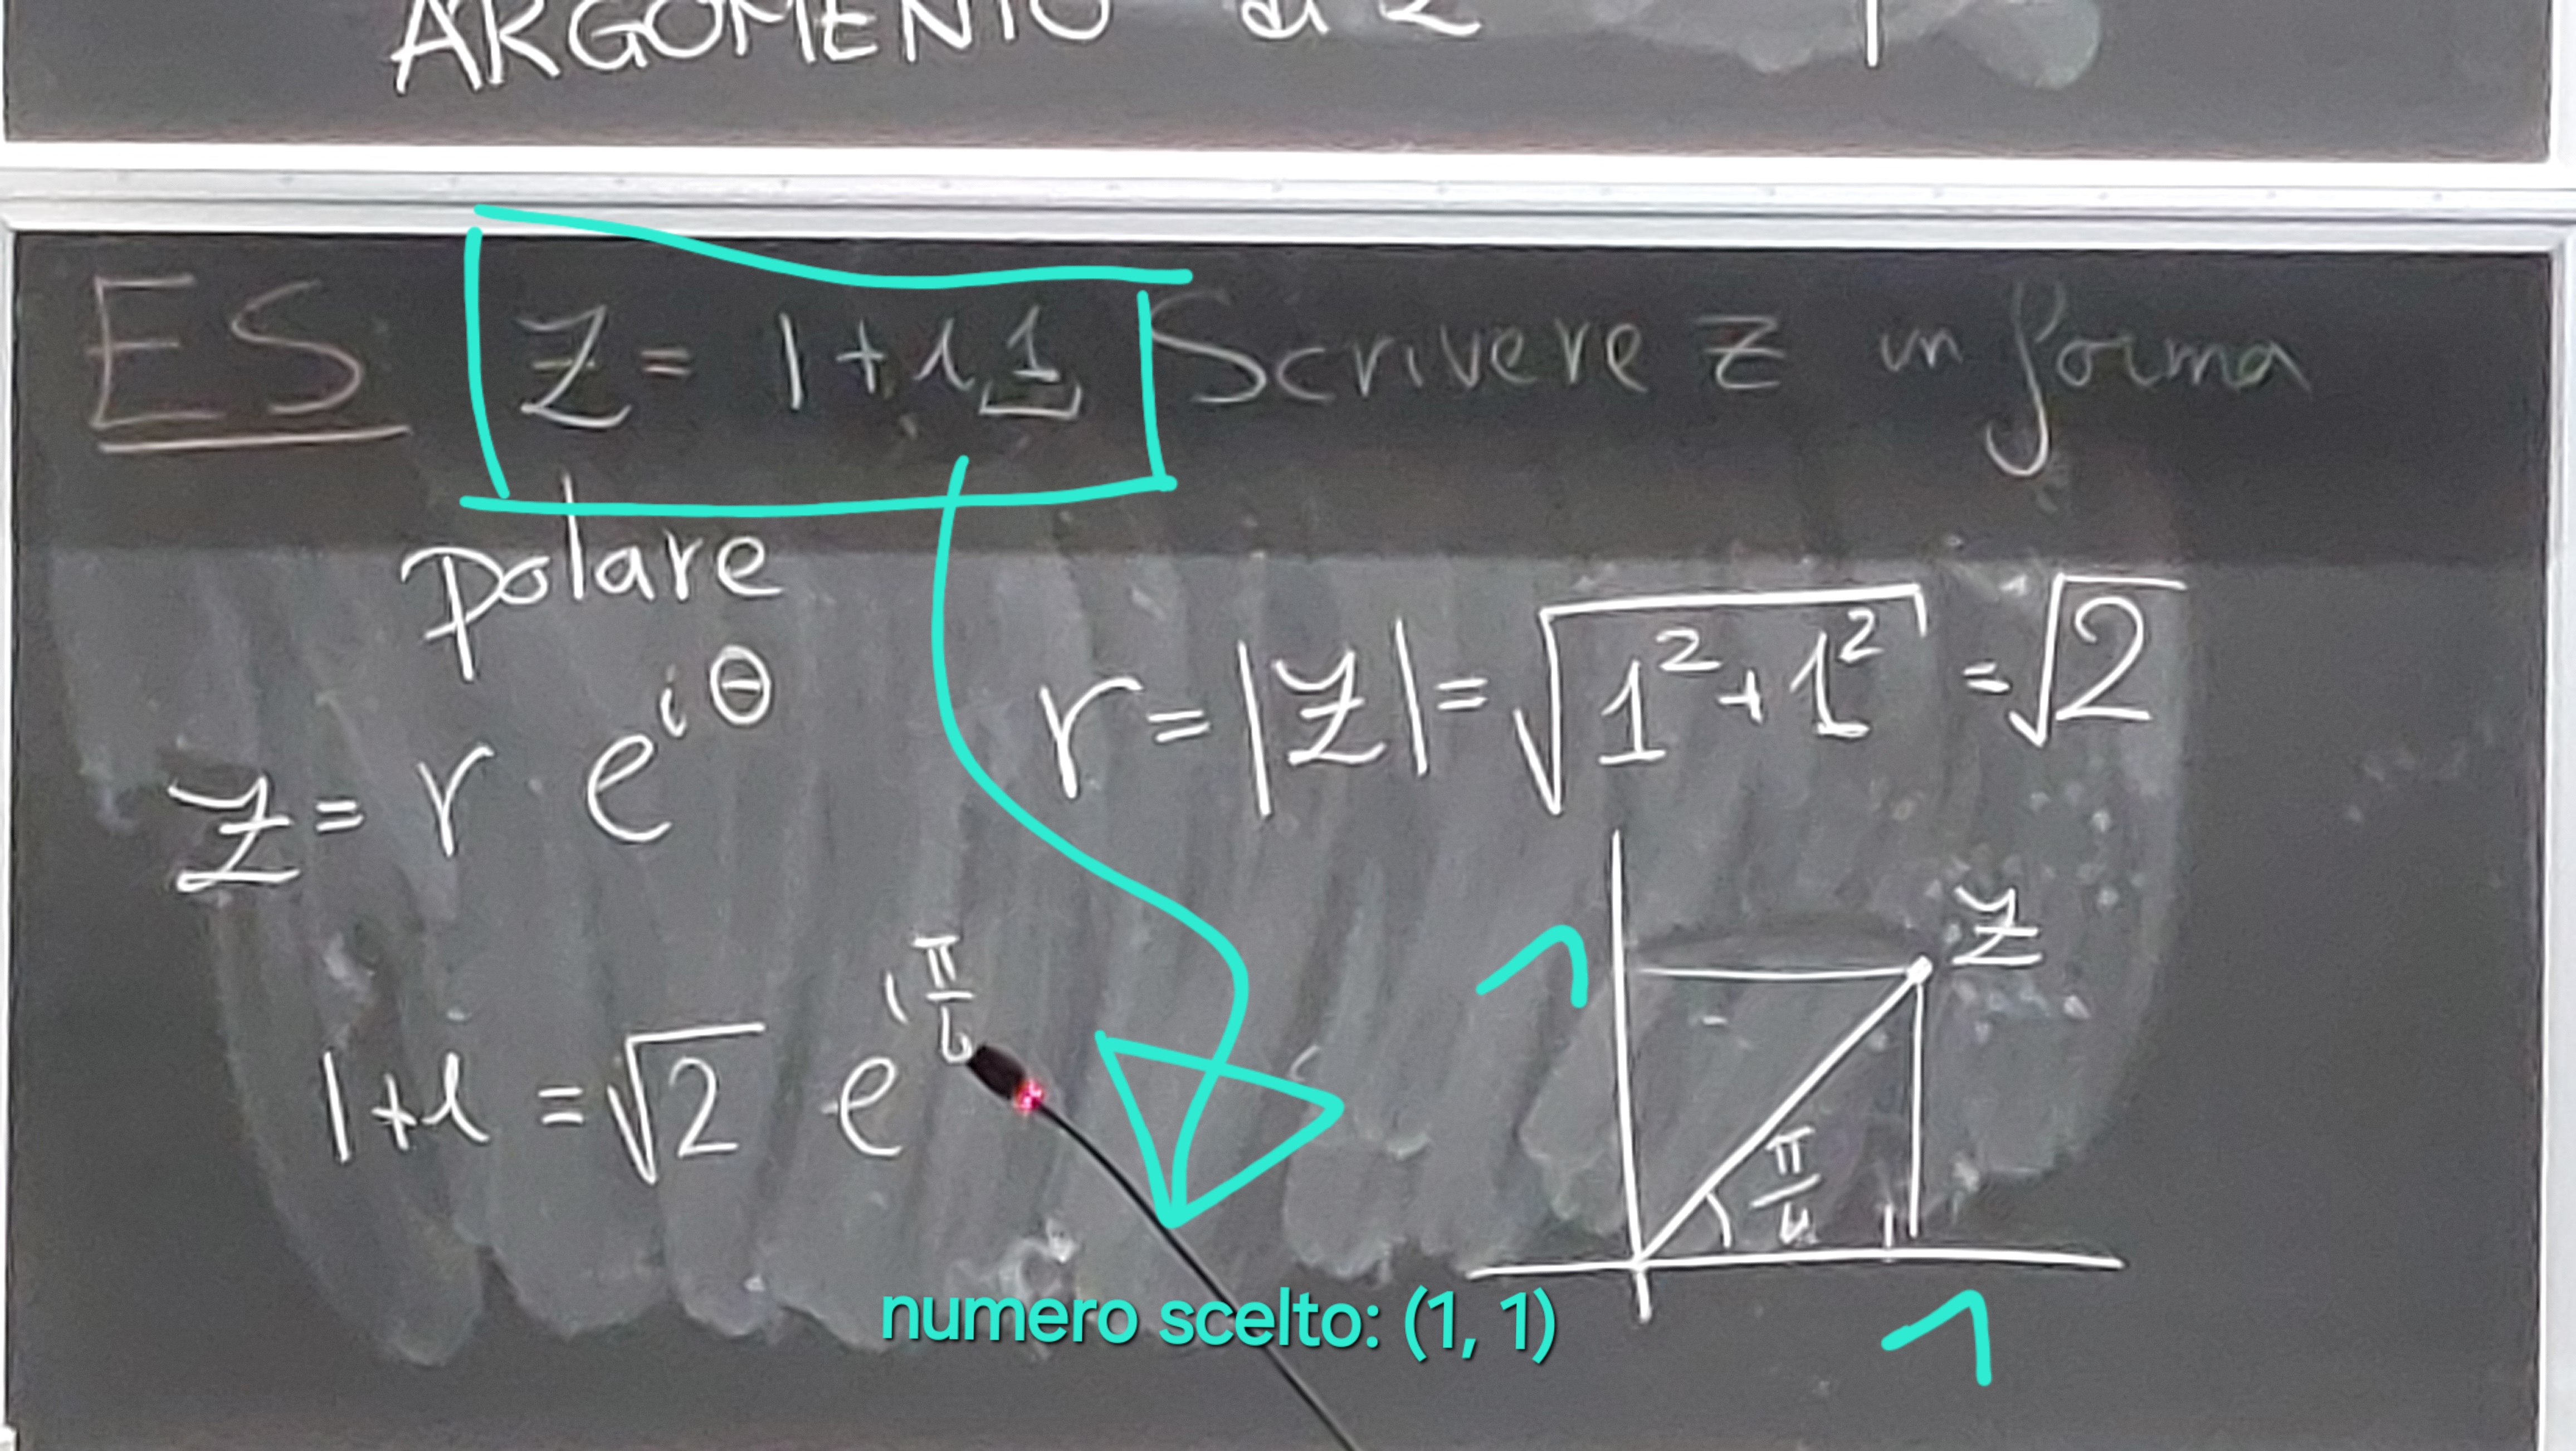 ARGOMENTO di z
ES z = 1+i1 Scrivere z in forma
polare
z = r e^{iθ}
r = |z| = √(1²+1²) = √2
1
z
1+i = √2 e^{i π/4}
π/4
1
numero scelto: (1, 1)
1